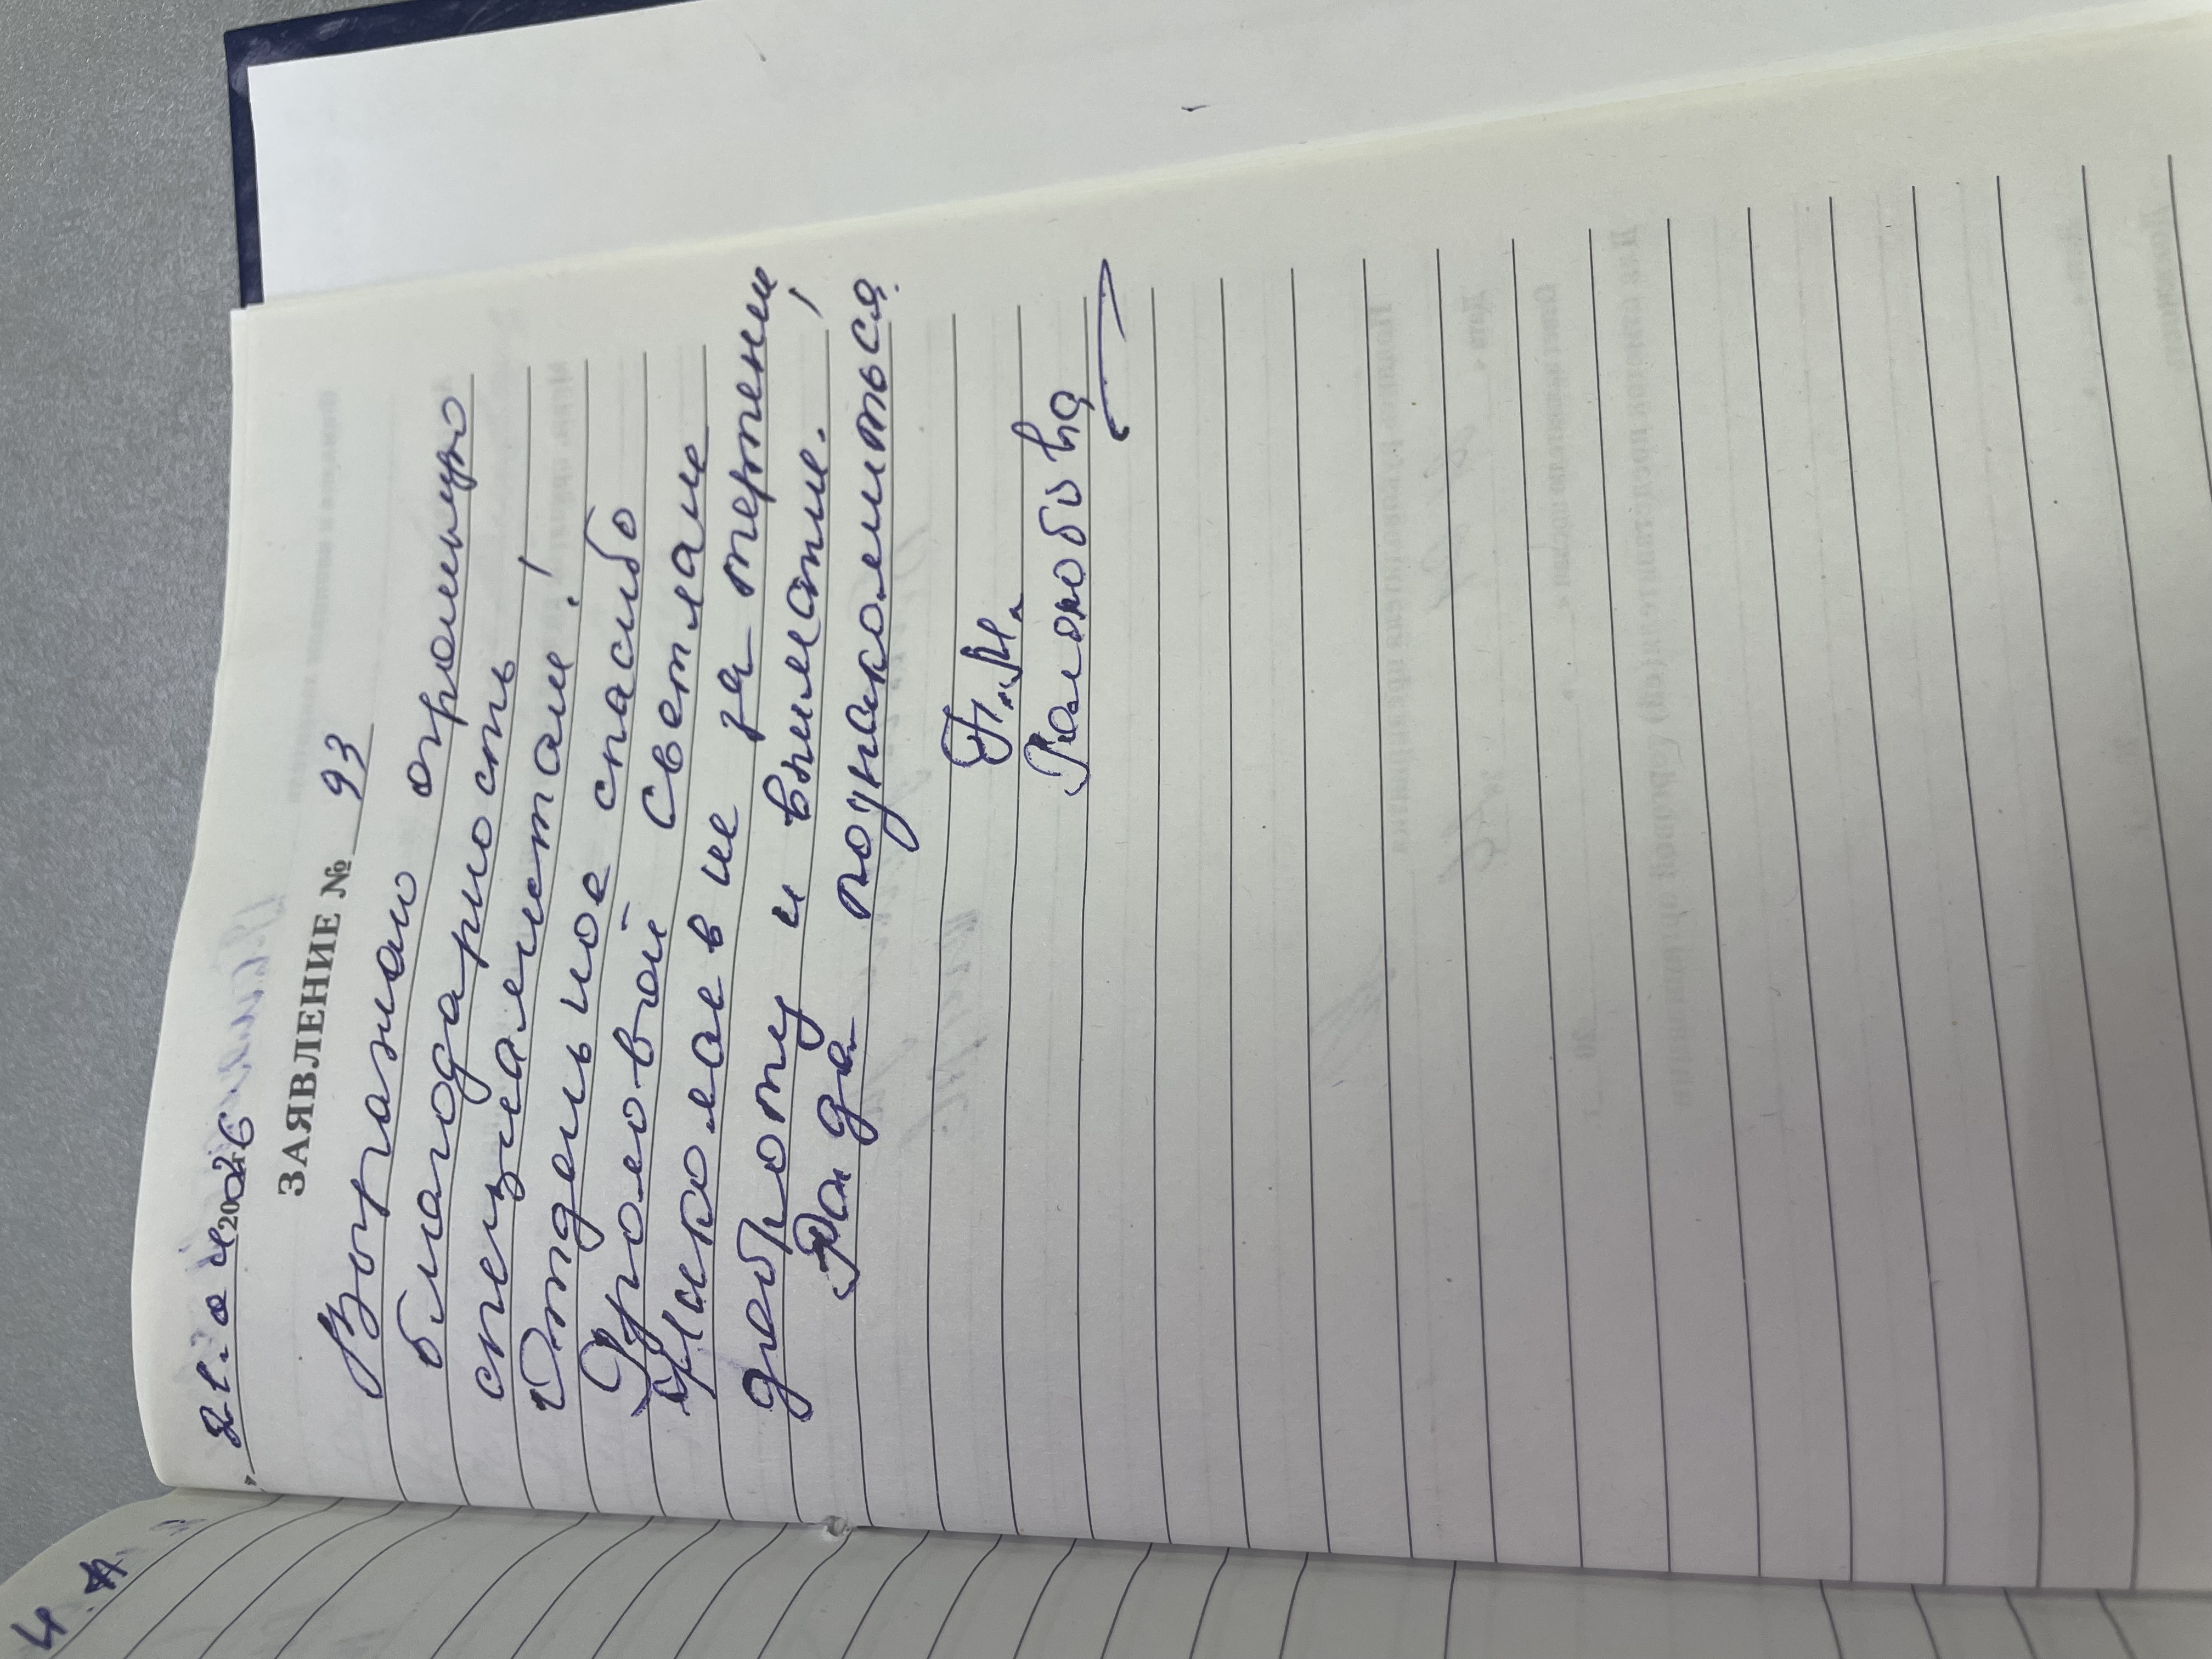 ЗАЯВЛЕНИЕ № 93
Выражаю огромную
благодарность
специалистам!
Отдельное спасибо
Фроловой Светлане
Николаевне за терпение
доброту и внимание!
Рада познакомиться.